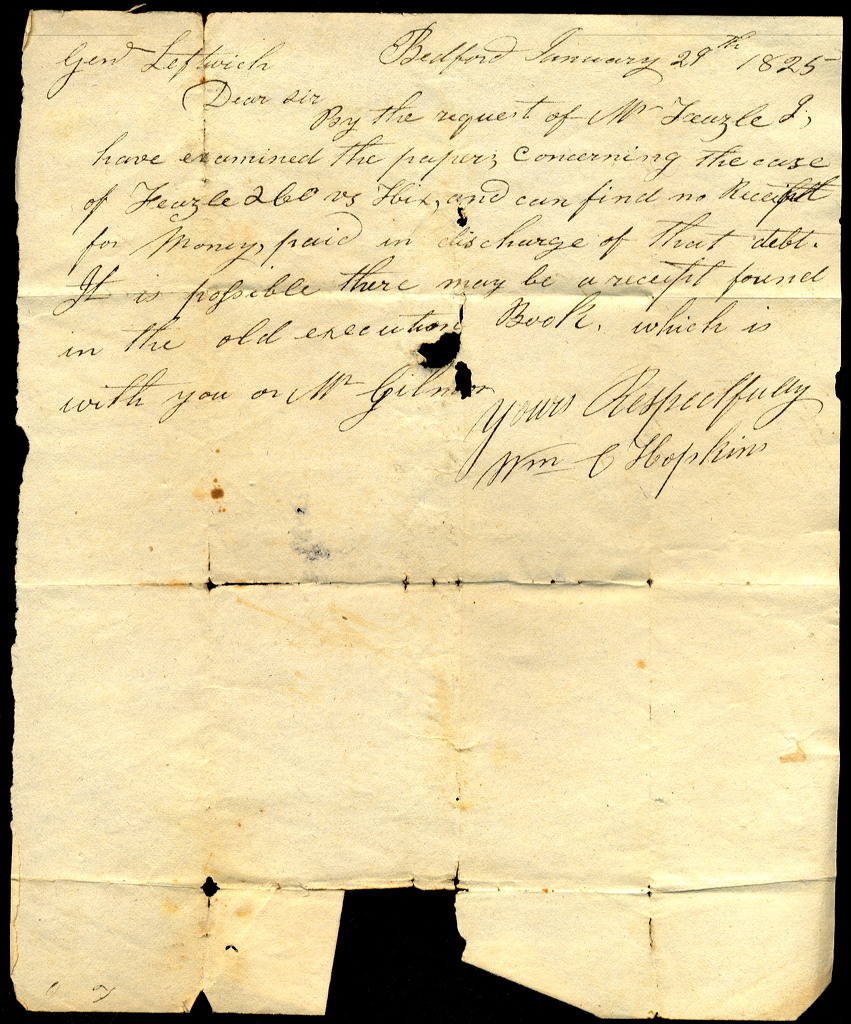 Genl Leftwich Bedford January 29th 1825
Dear sir
By the request of Mr Feazle I,
have examined the papers concerning the case
of Feazle & Co vs Hix, and can find no Receipt
for Money, paid in discharge of that debt.
It is possible there may be a receipt found
in the old execution Book. which is
with you or Mr Gilmor
Yours Respectfully
Wm C Hopkins